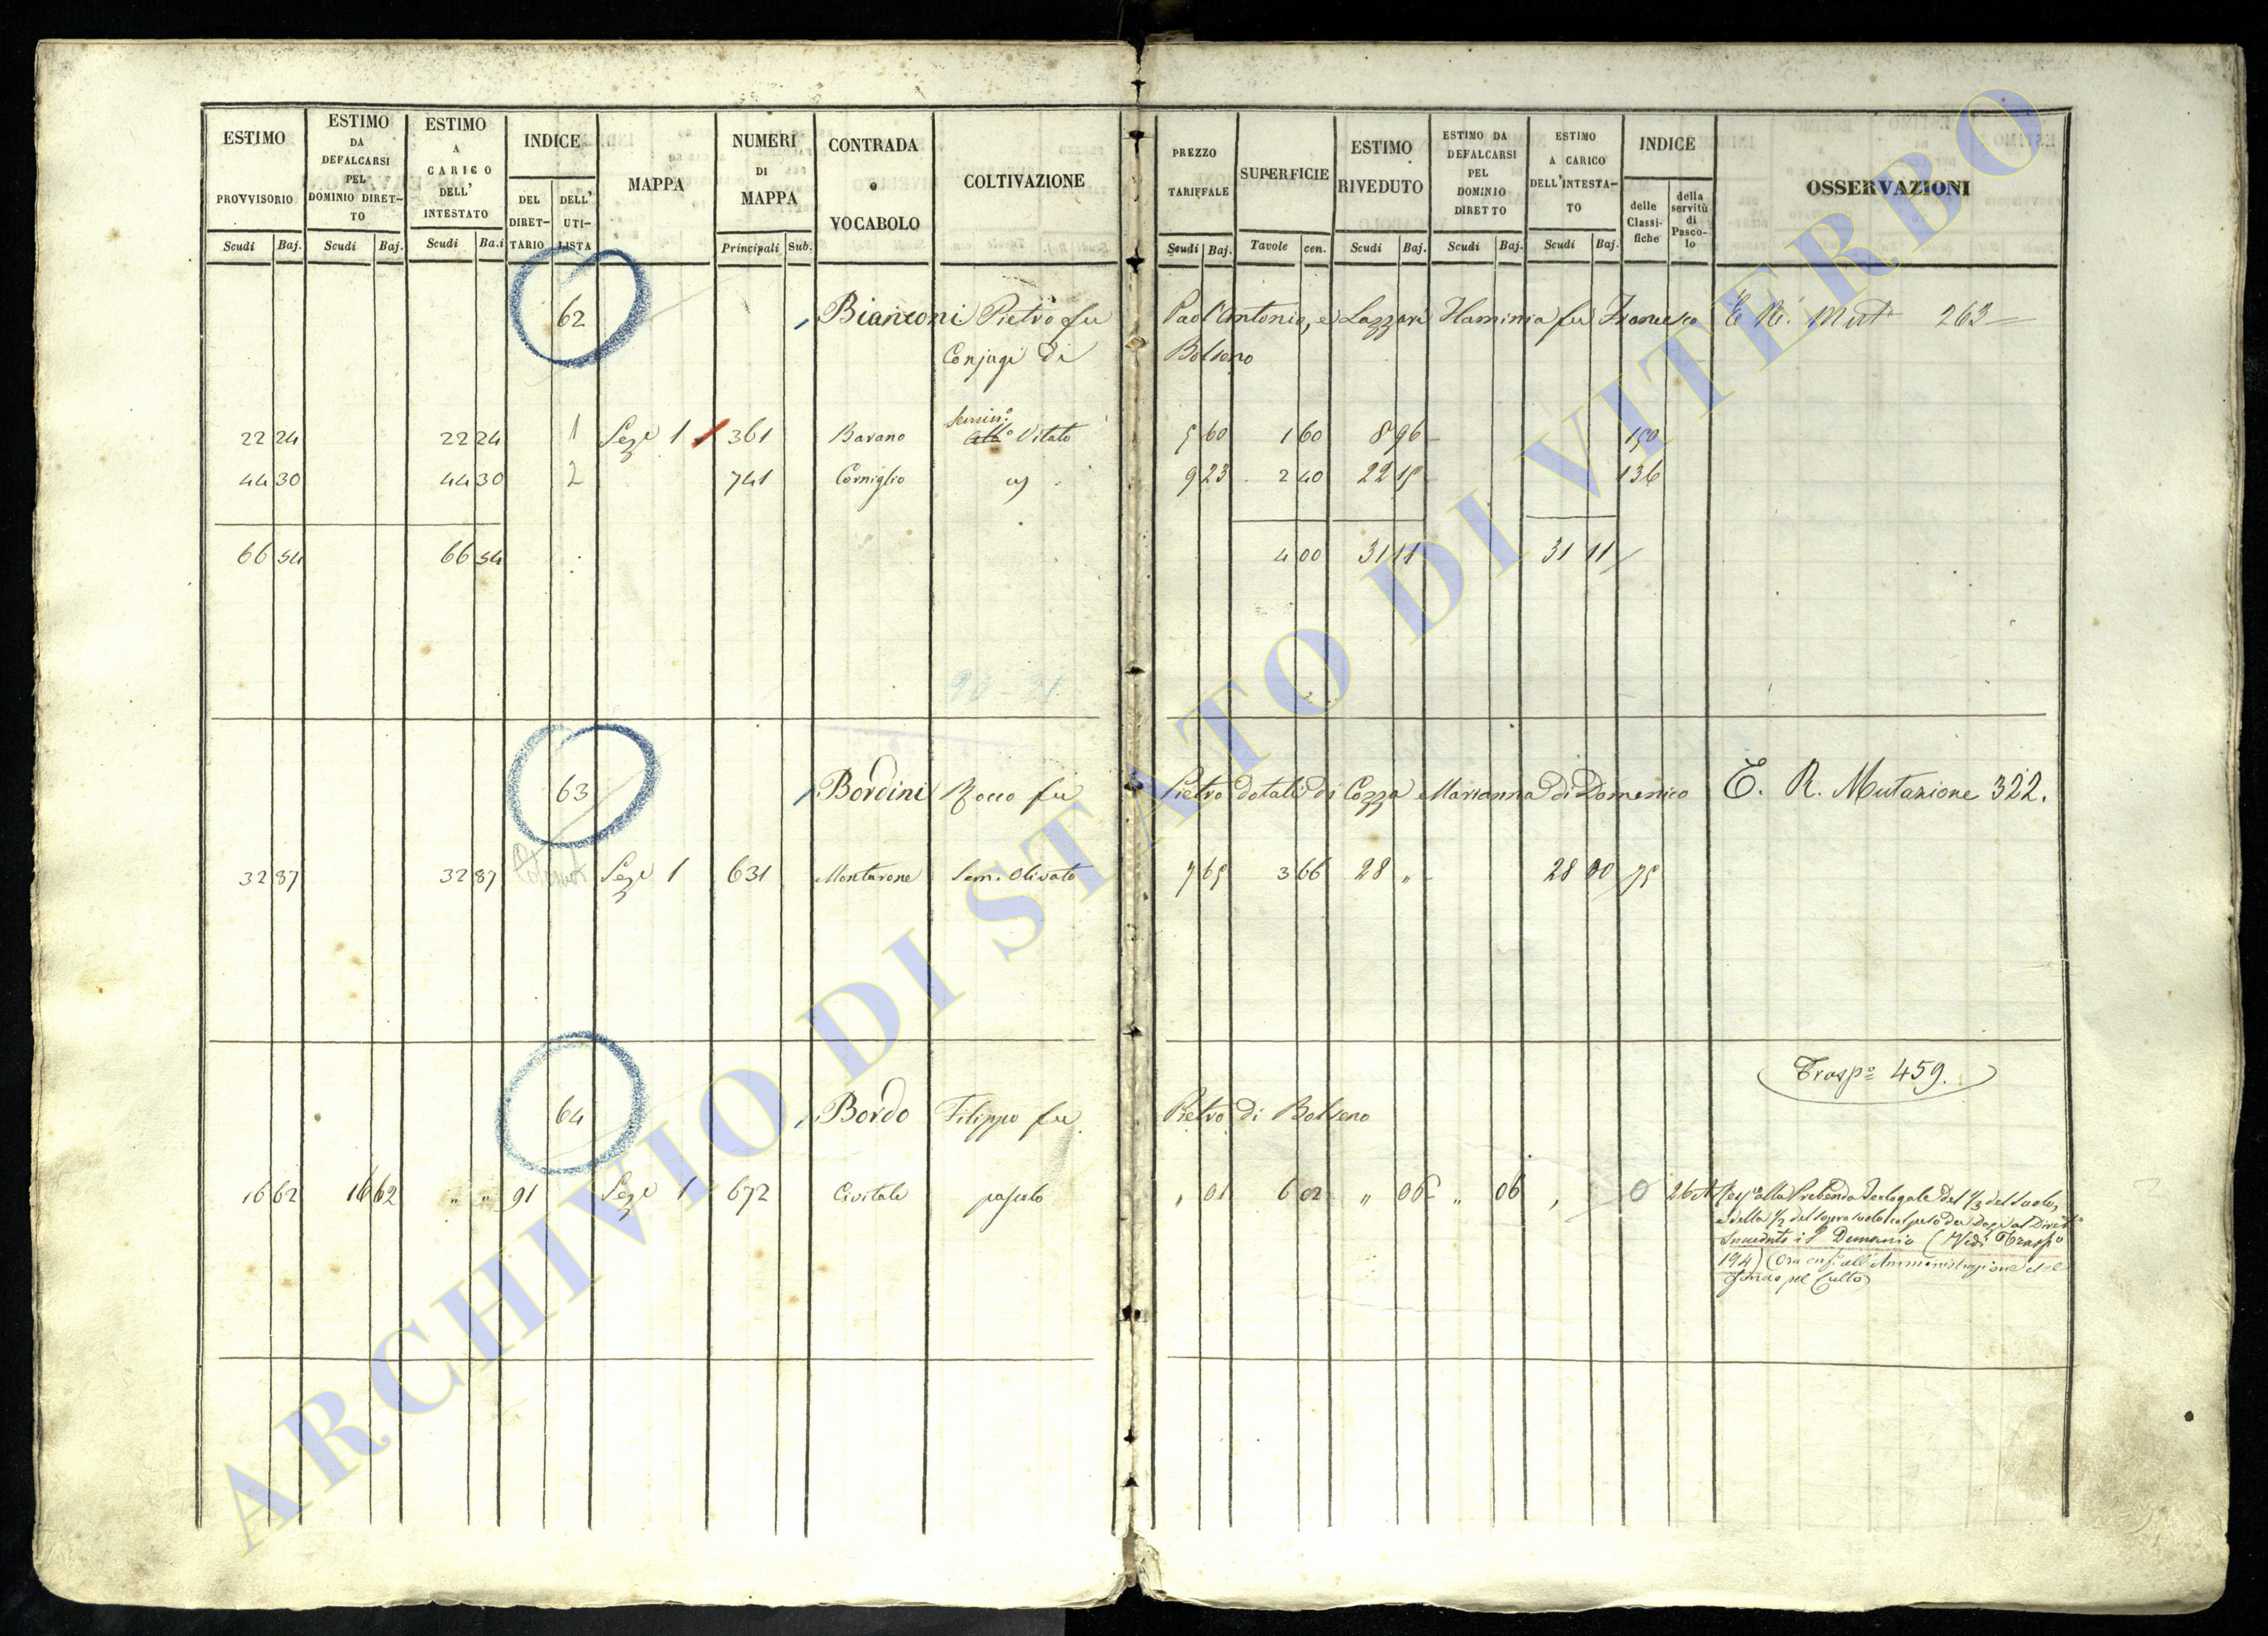 ESTIMO PROVVISORIO Scudi Baj.
ESTIMO DA DEFALCARSI PEL DOMINIO DIRET-TO Scudi Baj.
ESTIMO A CARICO DELL' INTESTATO Scudi Ba.i
INDICE DEL DIRET-TARIO DELL' UTI-LISTA
MAPPA
NUMERI DI MAPPA Principali Sub.
CONTRADA e VOCABOLO
COLTIVAZIONE
PREZZO TARIFFALE Scudi Baj.
SUPERFICIE Tavole cen.
ESTIMO RIVEDUTO Scudi Baj.
ESTIMO DA DEFALCARSI PEL DOMINIO DIRETTO Scudi Baj.
ESTIMO A CARICO DELL'INTESTA-TO Scudi Baj.
INDICE delle Classi-fiche della servitù di Pasco-lo
OSSERVAZIONI
62 Bianconi Pietro fu Paol'Antonio, e Lazzari Flaminia fu Francesco E. R. Mut.e 263
Conjugi di Bolseno
Semin.o
22 24 22 24 1 Sez.e 1 361 Barano Vitato 5 60 1 60 8 96 150
44 30 44 30 2 741 Corniglio 9 23 2 40 22 15 136
66 54 66 54 4 00 31 11 31 11
63 Bordini Rocco fu Pietro dotali di Cozza Marianna di Domenico E. R. Mutazione 322.
32 87 32 87 Sez.e 1 631 Montarone Sem. Olivato 7 65 3 66 28 " 28 00 75
Trasp.o 459.
64 Bordo Filippo fu Pietro di Bolseno
16 62 16 62 " " 91 Sez.e 1 672 Civitale pascolo " 01 6 02 " 06 " 06 0 26 A Resp.a alla Prebenda Teologale del 1/3 del suolo,
e della 1/2 del soprasuolo col peso de Dazi al Dirett.o
Succeduto il Demanio (Vedi Trasp.o
194) (Ora enf.a all'Amministrazione del
fondo pel Culto)
ARCHIVIO DI STATO DI VITERBO